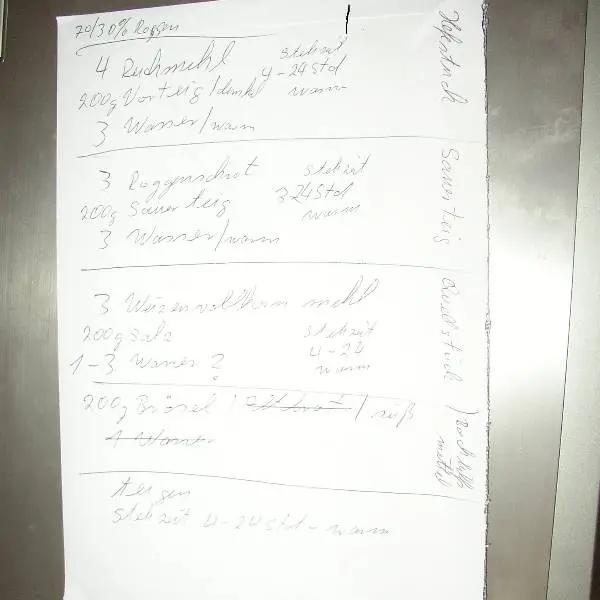 70/30% Roggen
4 Ruchmehl stehzeit
4-24 Std
200g Vorteig/dunkel warm
3 Wasser/warm
Hefestück
3 Roggenschrot stehzeit
200g Sauerteig 3 24 Std
warm
3 Wasser/warm
Sauerteig
3 Weizenvollkorn mehl
200g Salz stehzeit
4-20
1-3 Wasser ? warm
Quellstück
200g Brösel | | süß
4 Wasser
) Backhilfs
mittel
stehzeit 4-24 Std - warm